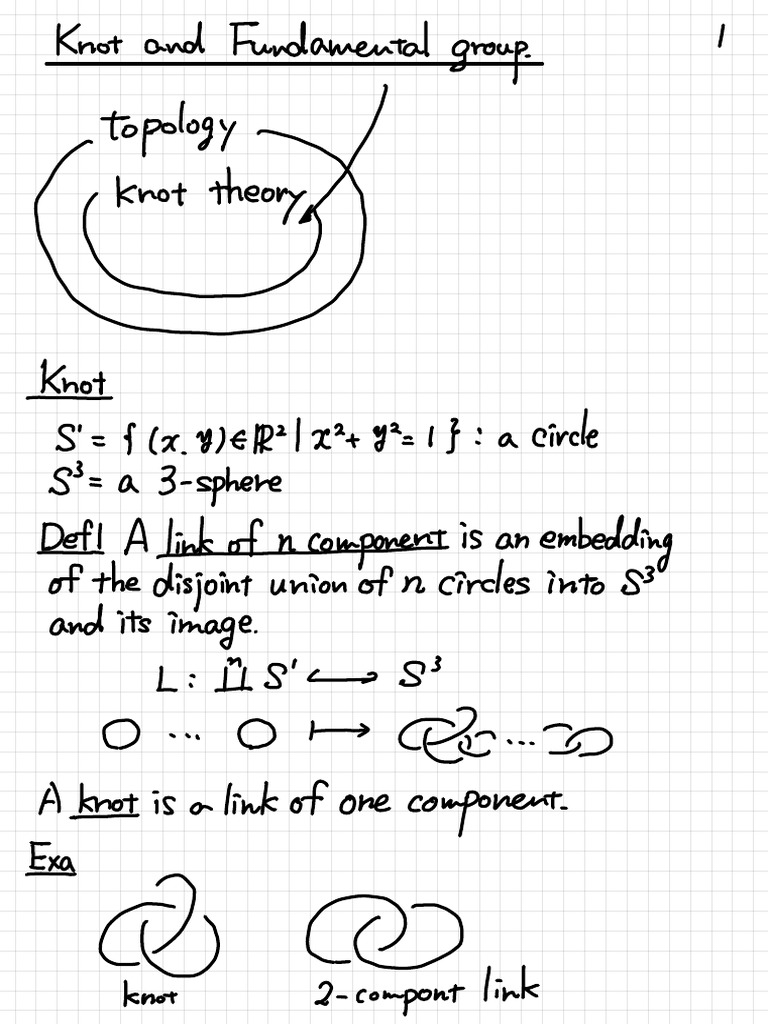 Knot and Fundamental group.
1
topology
knot theory
Knot
S¹ = { (x, y) ∈ ℝ² | x² + y² = 1 } : a circle
S³ = a 3-sphere
Def1 A link of n component is an embedding
of the disjoint union of n circles into S³
and its image.
L : ∐ⁿ S¹ ↪ S³
... ↦ ...
A knot is a link of one component.
Exa
knot
2-compont link